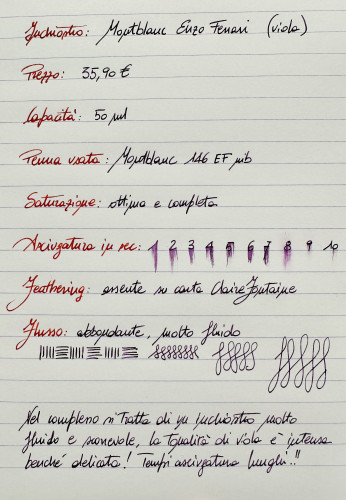 Inchiostro: Montblanc Enzo Ferrari (viola)
Prezzo: 35,90 €
Capacità: 50 ml
Penna usata: Montblanc 146 EF nib
Saturazione: ottima e completa
Asciugatura in sec: 1 2 3 4 5 6 7 8 9 10
Feathering: assente su carta Clairefontaine
Flusso: abbondante, molto fluido
Nel complesso si tratta di un inchiostro molto
fluido e scorrevole, la tonalità di viola è intensa
benché delicata! Tempi asciugatura lunghi!!